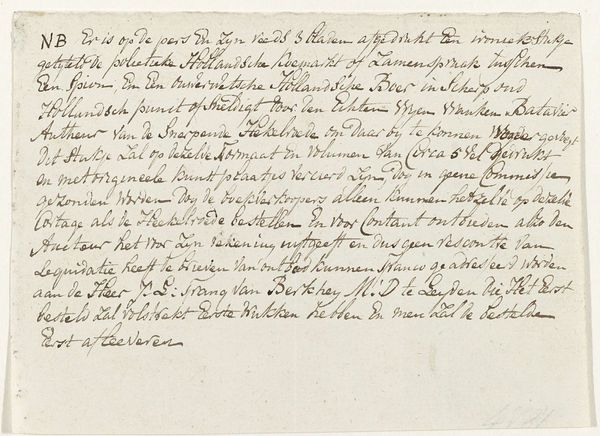 NB Er is op de pers En Zyn reeds 3 bladen afgedrukt Een ironiek Stukje
getyteld de polietieke Hollandsche Koemarkt of Zamenspraak Tusschen
Een Spion En Een Ouwerwetsche Hollandsche Boer in Scherp oud
Hollandsch punt of Sneldigt door den Echten Vryen Vranken Batavier
Autheur van de Snarpende Hekelroede om daar by te konnen
Dit Stukje Zal op dezelve Formaat en Volumen van Circa 5 Vel gedrukt
en met origineele kunstplaatjes vercierd Zyn, Dog in geene Commissie
gezonden Worden Dog de boekverkoopers alleen kunnen hetzelve op dezelve
Cortage als de Heekelroede bestellen En voor Contant ontbieden also den
Aucteur het voor Zyn Rekening uytgeeft en dus geen rescontre van
Lequidatie heeft de brieven van ontbod kunnen Franco geadresseerd worden
aan de Heer J: L: Frans van Berkhey M: D te Leyden die Het Eerst
besteld Zal volstrekt Eerste Drukken hebben En men Zal de bestelde
Eerst afleeveren